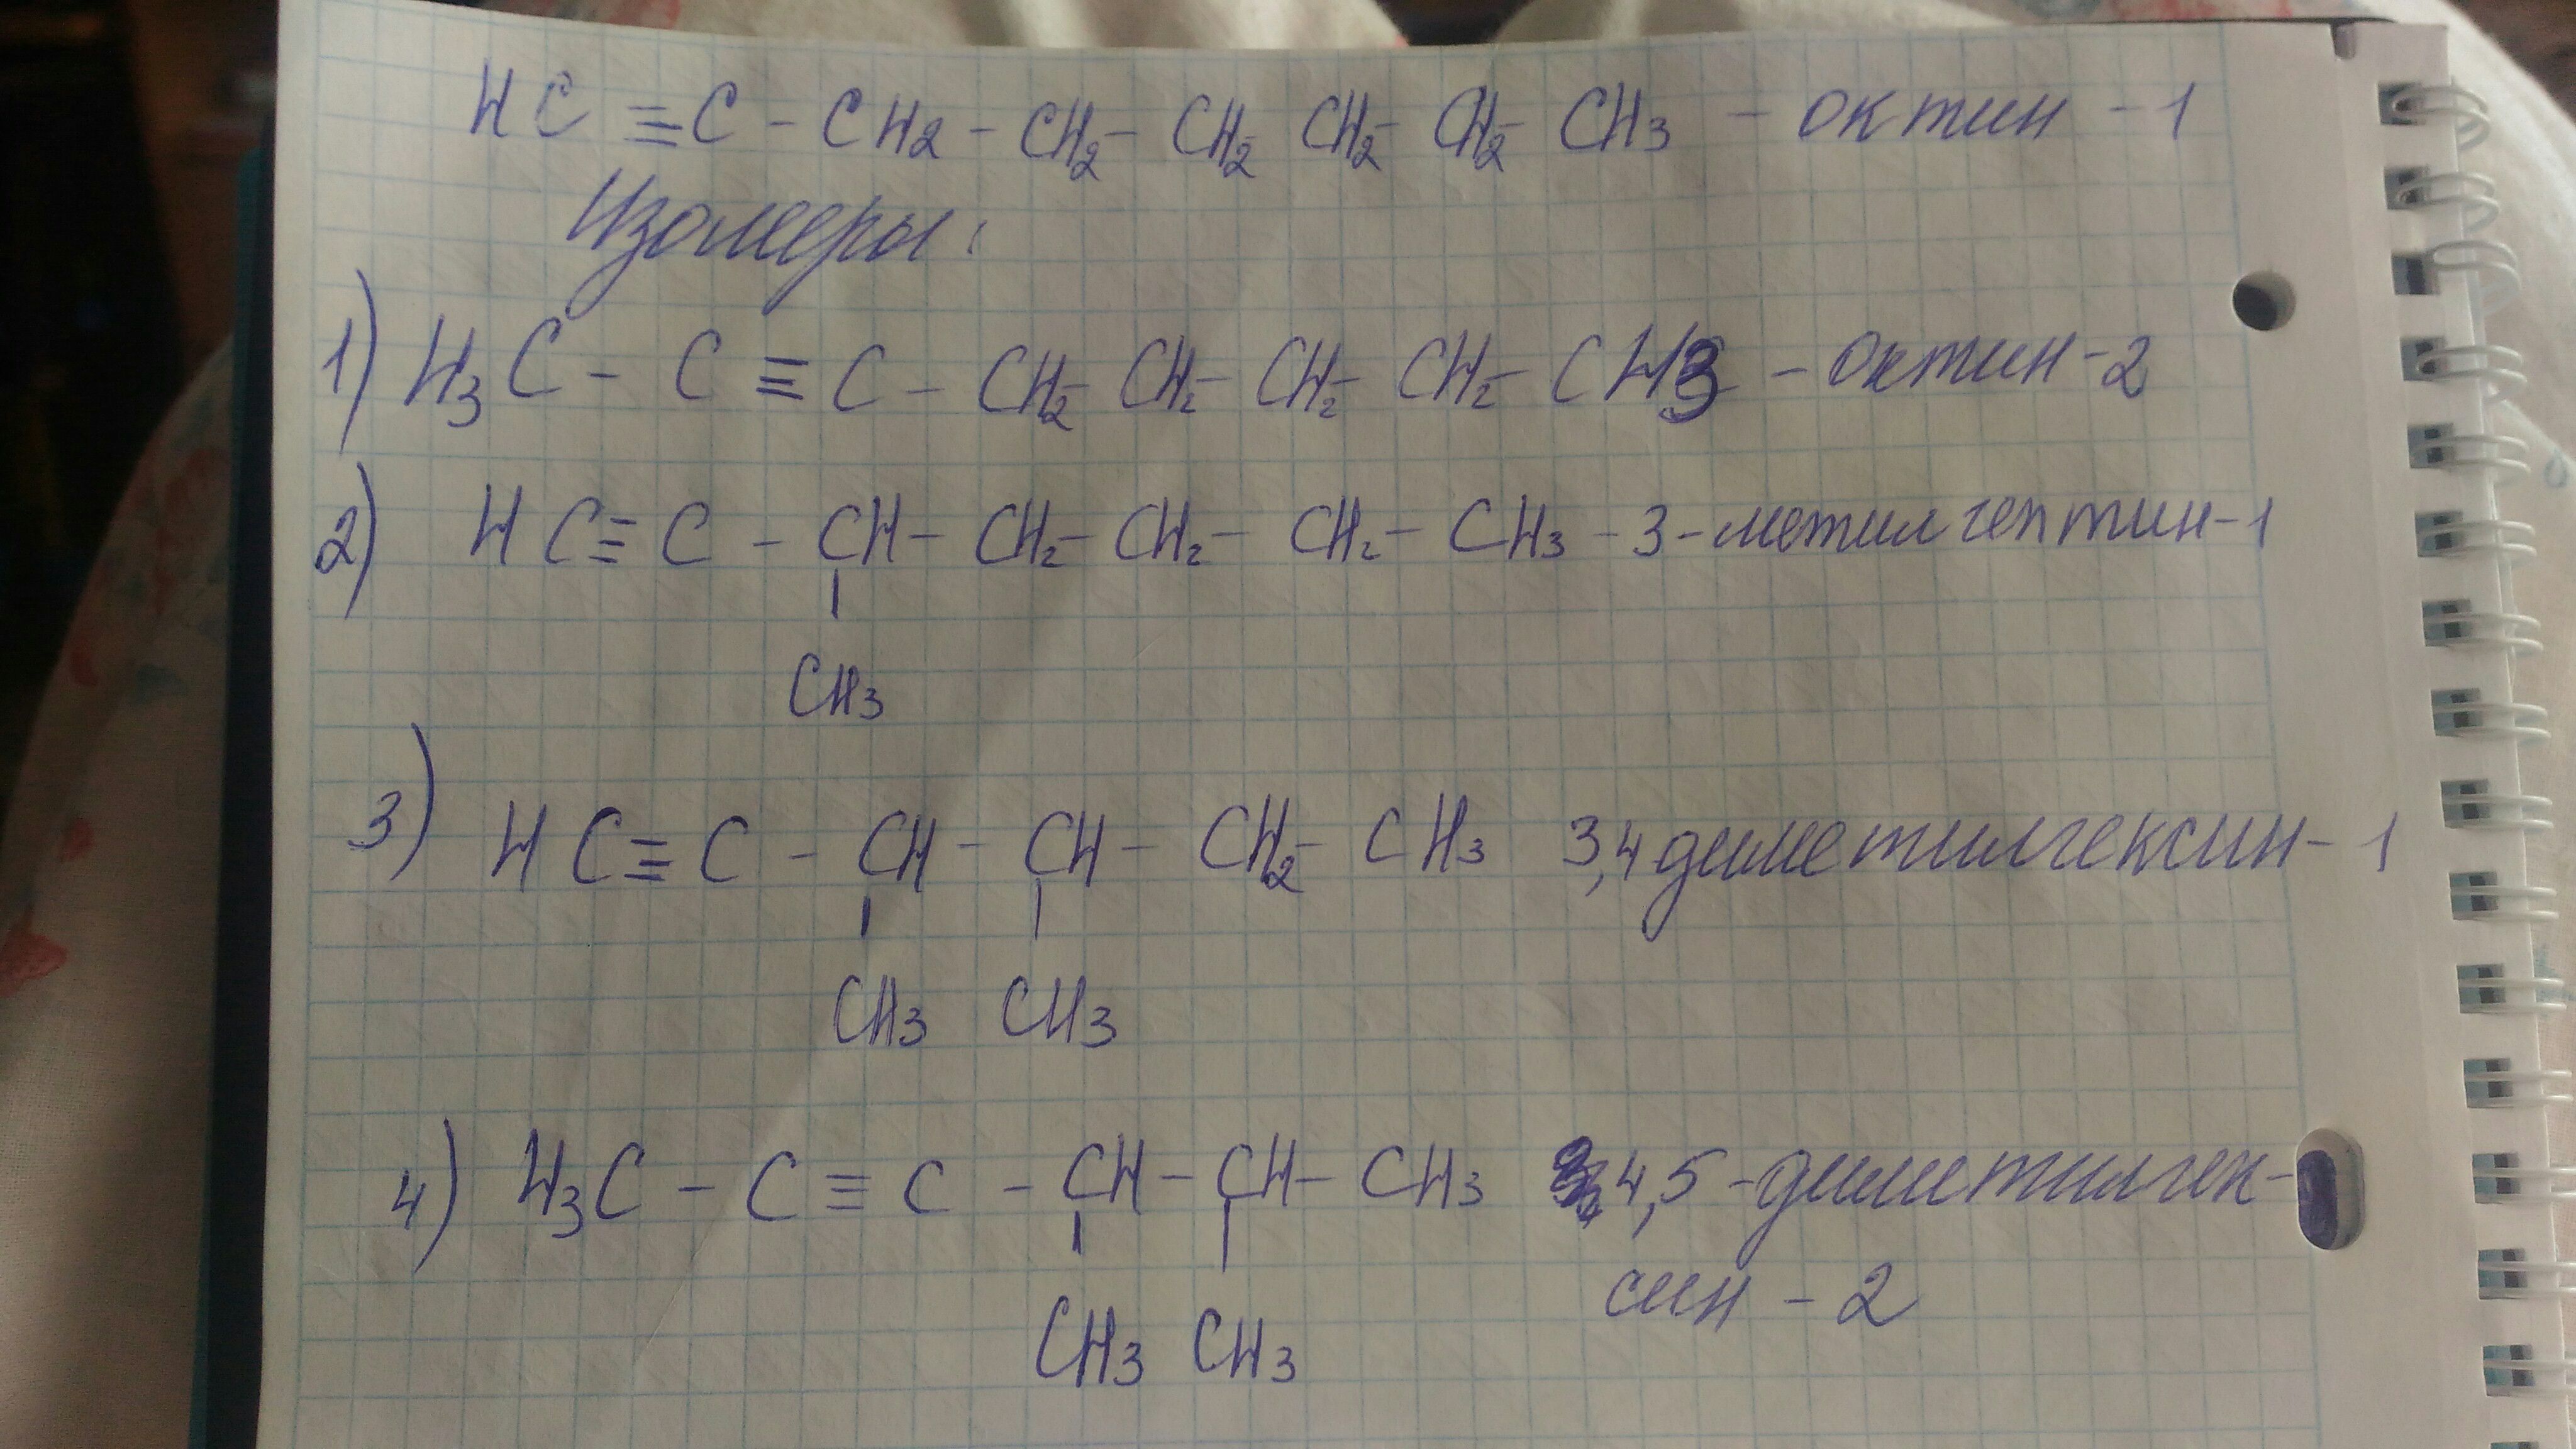 HC ≡ C - CH2 - CH2 - CH2 CH2 - CH2 - CH3 - октин - 1
Изомеры:
1) H3C - C ≡ C - CH2 - CH2 - CH2 - CH2 - CH3 - октин - 2
2) HC ≡ C - CH - CH2 - CH2 - CH2 - CH3 - 3 - метилгептин - 1
CH3
3) HC ≡ C - CH - CH - CH2 - CH3 3,4 диметилгексин - 1
CH3 CH3
4) H3C - C ≡ C - CH - CH - CH3 4,5 - диметилгек-
CH3 CH3 син - 2